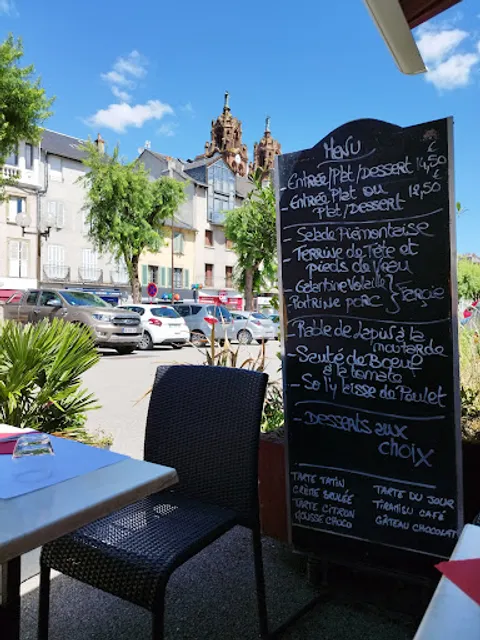 MENU €
-Entrée/Plat/Dessert 14,50
-Entrée Plat ou
Plat/Dessert 12,50
-Salade Piémontaise
-Terrine de Tête et
pieds de Veau
-Galantine Volaille
-Poitrine porc } Farcie
-Rable de Lapin à la
moutarde
-Sauté de Boeuf
à la tomate
-So l'y laisse de Poulet
-Desserts aux
choix
TARTE TATIN
CRÈME BRULÉE
TARTE CITRON
MOUSSE CHOCO
TARTE DU JOUR
TIRAMISU CAFÉ
GÂTEAU CHOCOLAT